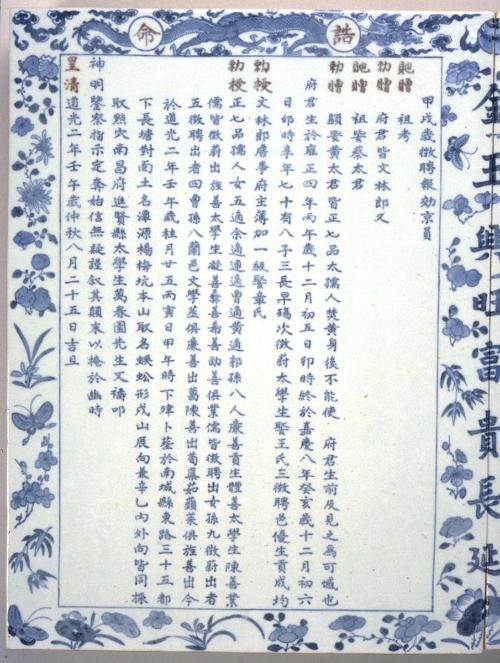 誥命
金玉興旺富貴長延
甲戌歲徵聘報効京員
貤贈 祖考
勅贈 府君皆文林郎又
貤贈 祖妣蔡太君
勅贈 顯妣黃太君皆正七品太孺人焚黃身後不能使 府君生前及見之為可憾也
府君生於雍正四年丙午歲十二月初五日卯時終於嘉慶八年癸亥歲十二月初六
日卯時享年七十有八子三長早殤次徵蔚太學生娶王氏三徵聘邑優生貢成均
勅授文林郎詹事府主薄加一級娶章氏
勅授正七品孺人女五適余適連適曹適黃適郭孫八人廉善貢生體善太學生陳善業
儒皆徵蔚出旌善太學生凝善彝善希善勛善俱業儒皆徵聘出女孫九徵蔚出者
五徵聘出者四曹孫八蘭邕文學荃俱廉善出葛陳善出荀藁茹蘋菜俱旌善出今
於道光二年壬午歲桂月廿五丙寅日甲午時下肂卜塋於南城縣東路三十五都
下長塘對面土名潭源楊梅坑本山取名蜈蚣形戌山辰向兼辛乙內外向皆同採
取㸃穴南昌府進賢縣太學生萬春園先生又禱叩
神明鑒察指示定奪始信無疑謹叙其顛末以掩於幽時
皇清道光二年壬午歲仲秋八月二十五日吉旦